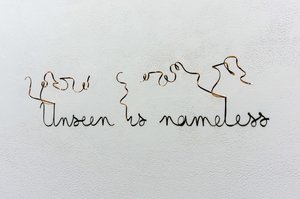 Unseen is nameless